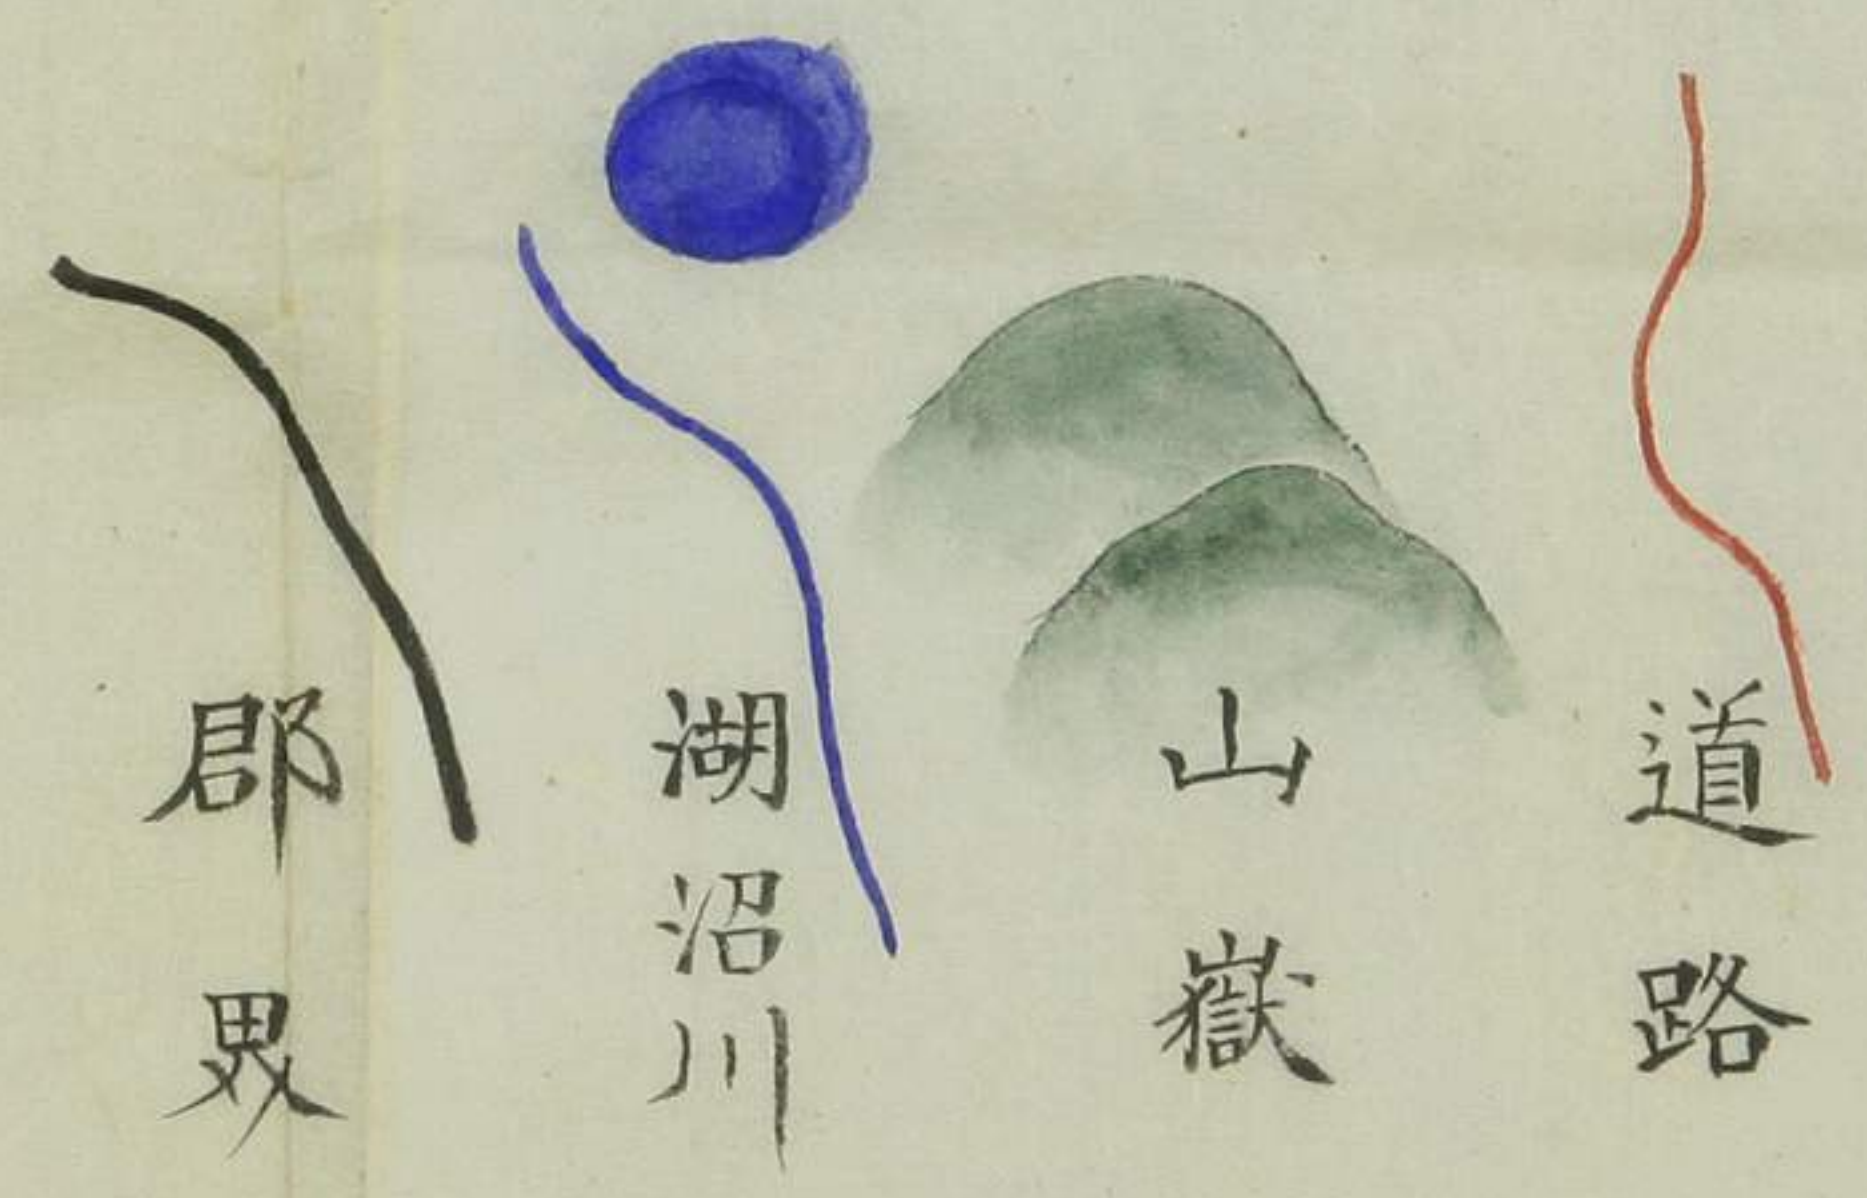 道路
山嶽
湖沼川
郡界